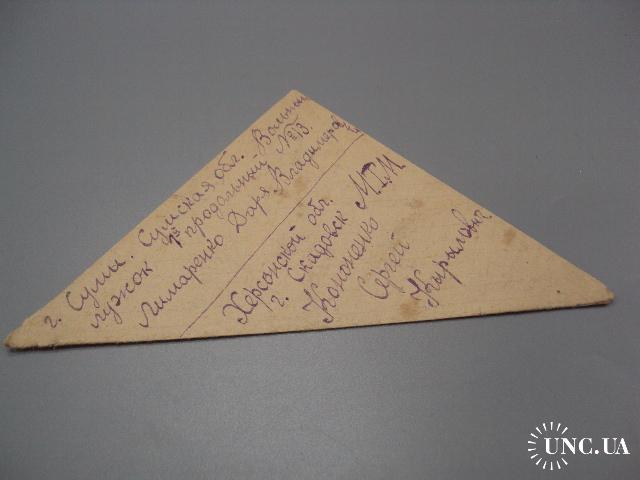 г. Сумы. Сумская обл. Вольный
лужок 1й продольный №13.
Лимаренко Даря Владимеров
Херсонской обл.
г. Скадовск МТМ
Кононенко
Сергей
Кырыловича
UNC.UA